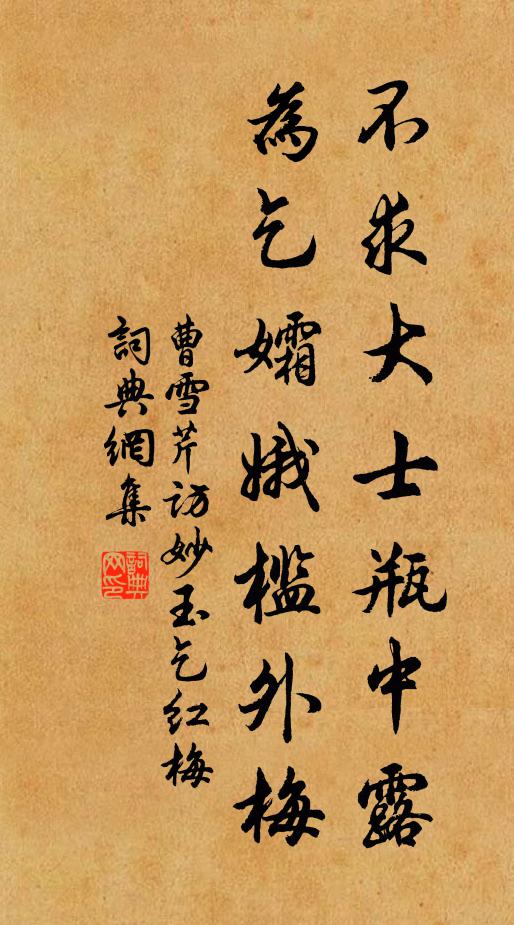 不求大士瓶中露
為乞孀娥檻外梅
曹雪芹訪妙玉乞红梅
詞典網集
詞典网印